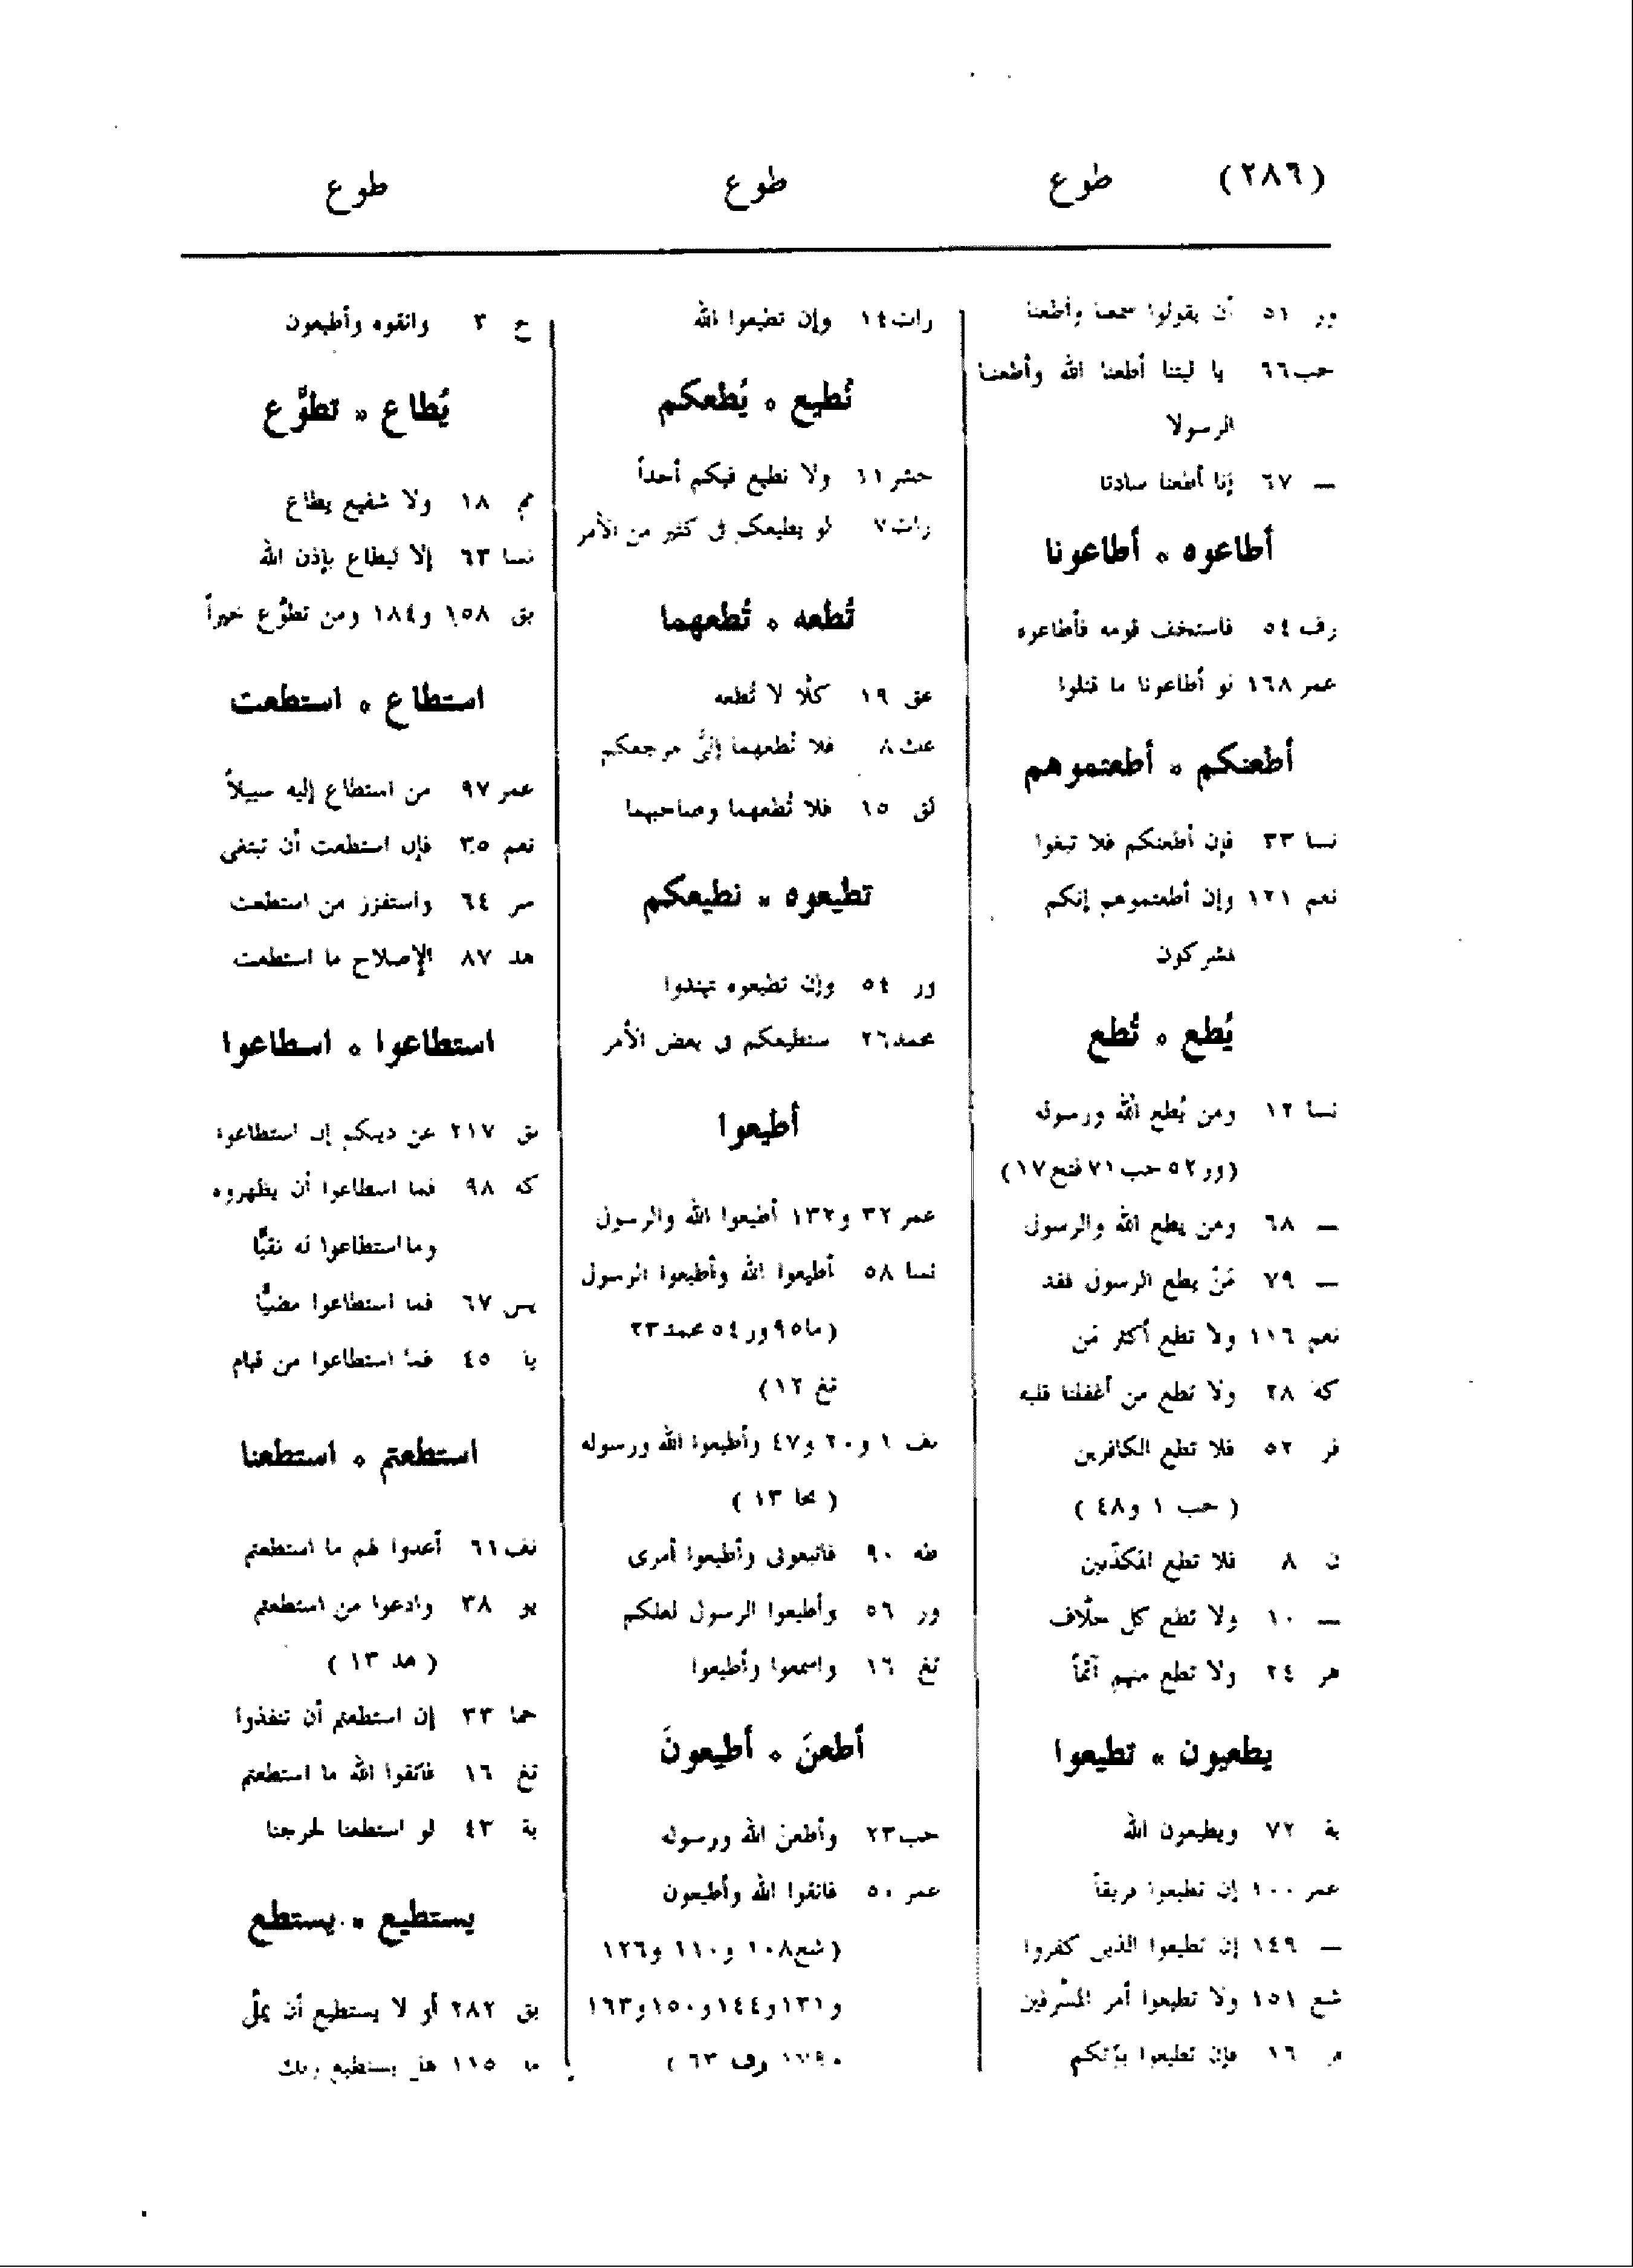 (٢٨٦) طوع
طوع
طوع
ور ٥١ أن يقولوا سمعنا وأطعنا
حب ٦٦ يا ليتنا أطعنا الله وأطعنا
الرسولا
— ٦٧ إنا أطعنا سادتنا
أطاعوه ٥ أطاعونا
رف ٥٤ فاستخف قومه فأطاعوه
عمر ١٦٨ لو أطاعونا ما قتلوا
أطعنكم ٥ أطعتموهم
نسا ٣٣ فإن أطعنكم فلا تبغوا
نعم ١٢١ وإن أطعتموهم إنكم
لمشركون
يُطع ٥ تُطع
نسا ١٢ ومن يُطع الله ورسوله
(ور ٥٢ حب ٧١ فتح ١٧)
— ٦٨ ومن يطع الله والرسول
— ٧٩ مَنْ يطع الرسول فقد
نعم ١١٦ ولا تطع أكثر مَن
كه ٢٨ ولا تطع من أغفلنا قلبه
فر ٥٢ فلا تطع الكافرين
( حب ١ و٤٨ )
ن ٨ فلا تطع المكذّبين
— ١٠ ولا تطع كل حلّاف
هر ٢٤ ولا تطع منهم آثماً
يطعيون ٥ تطيعوا
بة ٧٢ ويطيعون الله
عمر ١٠٠ إن تطيعوا فريقاً
— ١٤٩ إن تطيعوا الذين كفروا
شع ١٥١ ولا تطيعوا أمر المسرفين
١٦ فإن تطيعوا يؤتكم
رات ١٤ وإن تطيعوا الله
نُطيع ٥ يُطعكم
حشر ١١ ولا نطيع فيكم أحداً
رات ٧ لو يطيعكم في كثير من الأمر
تُطعه ٥ تُطعهما
عق ١٩ كلّا لا تُطعه
عث ٨ فلا تُطعهما إليَّ مرجعكم
لق ١٥ فلا تُطعهما وصاحبهما
تطيعوه ٥ نطيعكم
ور ٥٤ وإن تطيعوه تهتدوا
محمد ٢٦ سنطيعكم في بعض الأمر
أطيعوا
عمر ٣٢ و١٣٢ أطيعوا الله والرسول
نسا ٥٨ أطيعوا الله وأطيعوا الرسول
(ما ٩٥ ور ٥٤ محمد ٣٣
تغ ١٢)
نف ١ و٢٠ و٤٧ وأطيعوا الله ورسوله
( مجا ١٣ )
طه ٩٠ فاتبعوني وأطيعوا أمرى
ور ٥٦ وأطيعوا الرسول لعلكم
تغ ١٦ واسمعوا وأطيعوا
أطعنَ ٥ أطيعونَ
حب ٣٣ وأطعن الله ورسوله
عمر ٥٠ فاتقوا الله وأطيعون
( شع ١٠٨ و١١٠ و١٢٦
و١٣١ و١٤٤ و١٥٠ و١٦٣
و١٧٩ رف ٦٣ )
ح ٣ واتقوه وأطيعون
يُطاع ٥ تطوَّع
مم ١٨ ولا شفيع يطاع
نسا ٦٣ إلا ليطاع بإذن الله
بق ١٥٨ و١٨٤ ومن تطوّع خيراً
استطاع ٥ استطعت
عمر ٩٧ من استطاع إليه سبيلاً
نعم ٣٥ فإن استطعت أن تبتغى
سر ٦٤ واستفزز من استطعت
هد ٨٧ الإصلاح ما استطعت
استطاعوا ٥ اسطاعوا
بق ٢١٧ عن دينكم إن استطاعوا
كه ٩٨ فما اسطاعوا أن يظهروه
وما استطاعوا له نقبًّا
يس ٦٧ فما استطاعوا مضيًّا
يا ٤٥ فما استطاعوا من قيام
استطعتم ٥ استطعنا
نف ٦١ أعدوا لهم ما استطعتم
يو ٣٨ وادعوا من استطعتم
( هد ١٣ )
حما ٣٣ إن استطعتم أن تنفذوا
تغ ١٦ فاتقوا الله ما استطعتم
بة ٤٣ لو استطعنا لخرجنا
يستطيع ٥ يستطع
بق ٢٨٢ أو لا يستطيع أن يملّ
ما ١١٥ هل يستطيع ربك